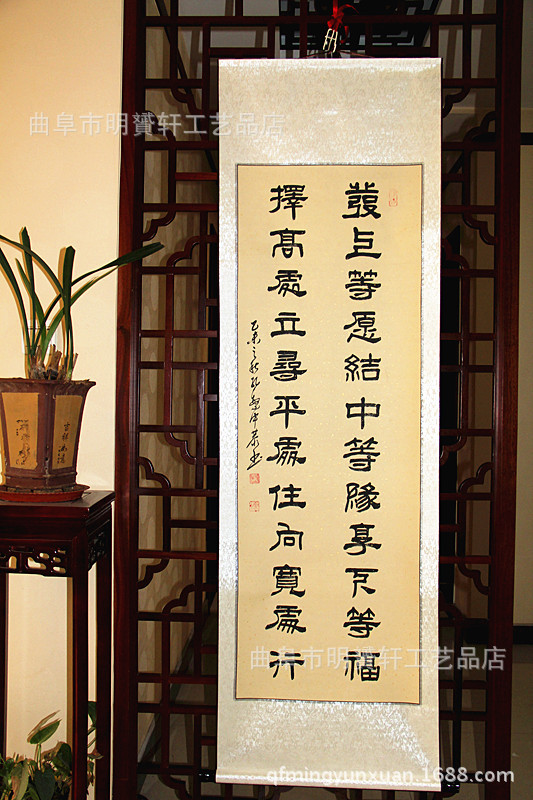 發上等愿結中等緣享下等福
擇高處立尋平處住向寬處行
乙未之秋
曲阜市明贇轩工艺品店
曲阜市明贇轩工艺品店
qfmingyunxuan.1688.com